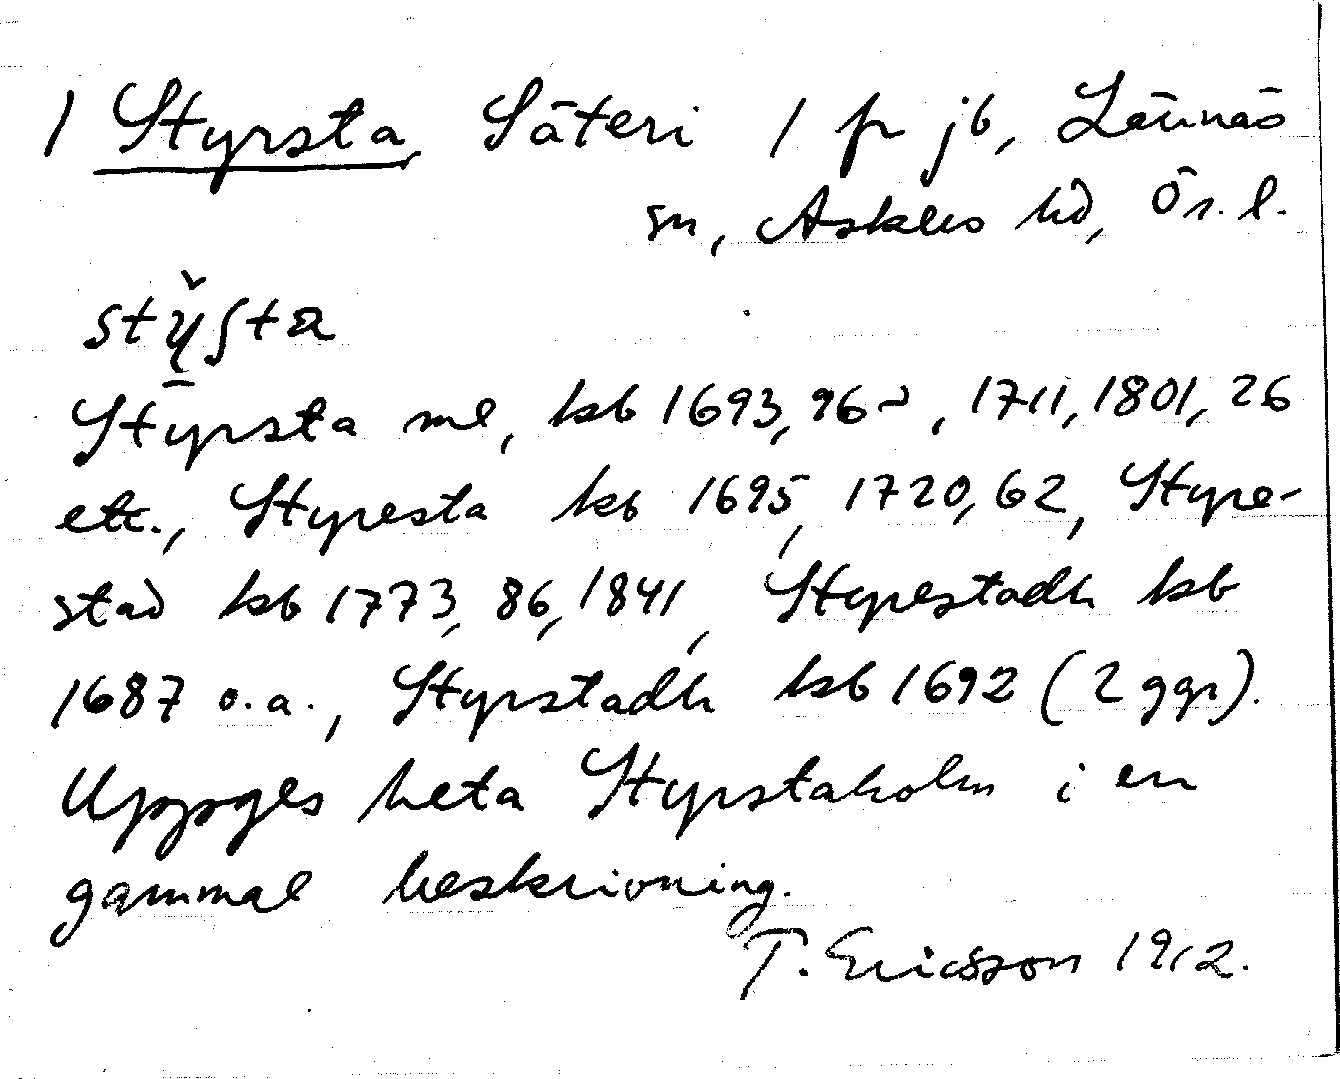 1 Styrsta Säteri 1 fr jb, Lännäs
sn, Askers hd, Ör. l.
stẙſta
Stÿrsta ml, kb 1693, 96 ~, 1711, 1801, 26
etc., Styresta kb 1695, 1720, 62, Styre-
stad kb 1773, 86, 1841, Styrestadh kb
1687 o.a., Styrstadh kb 1692 (2 ggr).
Uppges heta Styrstaholm i en
gammal beskrivning.
T. Ericsson 1912.